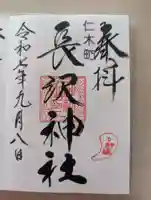 奉拝
仁木町
長沢神社
令和七年九月八日